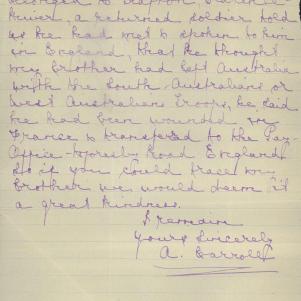 Power, a returned soldier told
us he had met & spoken to him
in England, that he thought
my brother had left Australia
with the South-Australians or
West Australians Troops, he said
he had been wounded in
France & transferred to the Pay
Office - Road England
So if you could trace my
brother we would deem it
a great kindness.
I remain
Yours Sincerely
A. Carroll